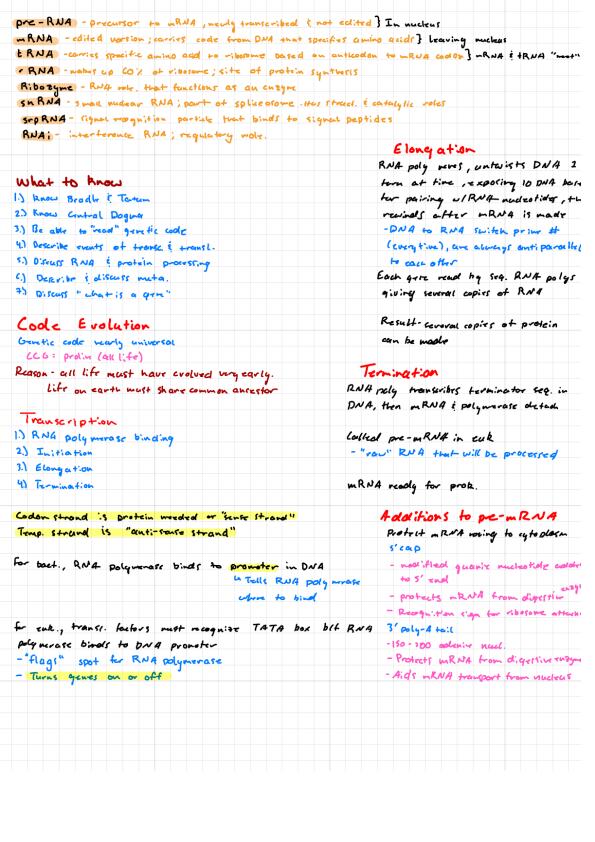 pre-RNA - precursor to mRNA, newly transcribed & not edited } In nucleus
mRNA - edited version; carries code from DNA that specifies amino acids } leaving nucleus
tRNA - carries specific amino acid to ribosome based on anticodon to mRNA codon } mRNA & tRNA "meet"
rRNA - makes up 60% of ribosome; site of protein synthesis
Ribozyme - RNA mole. that functions as an enzyme
snRNA - small nuclear RNA; part of spliceosome. Has struct. & catalytic roles
srpRNA - signal recognition particle that binds to signal peptides
RNAi - interference RNA; regulatory mole.
What to Know
1.) Know Beadle & Tatum
2.) Know Central Dogma
3.) Be able to "read" genetic code
4.) Describe events of transc. & transl.
5.) Discuss RNA & protein processing
6.) Describe & discuss muta.
7.) Discuss "what is a gene"
Code Evolution
Genetic code nearly universal
CCG: prolin (all life)
Reason - all life must have evolved very early.
Life on earth must share common ancestor
Transcription
1.) RNA polymerase binding
2.) Initiation
3.) Elongation
4.) Termination
Codon strand is protein needed or "sense strand"
Temp. strand is "anti-sense strand"
For bact., RNA polymerase binds to promoter in DNA
↳ Tells RNA polymerase
where to bind
for euk., transc. factors must recognize TATA box bif RNA
polymerase binds to DNA promoter
- "flags" spot for RNA polymerase
- Turns genes on or off
Elongation
RNA poly moves, untwists DNA 1
turn at time, exposing 10 DNA base
for pairing w/RNA nucleotides, th
rewinds after mRNA is made
- DNA to RNA switch prime #
(every time), are always antiparallel
to each other
Each gene read by seq. RNA polys
giving several copies of RNA
Result - several copies of protein
can be made
Termination
RNA poly transcribes terminator seq. in
DNA, then mRNA & polymerase detach
Called pre-mRNA in euk
- "raw" RNA that will be processed
mRNA ready for prok.
Additions to pre-mRNA
Protect mRNA moving to cytoplasm
5' cap
- modified guanine nucleotide added
to 5' end
- protects mRNA from digestive enzy
- Recognition sign for ribosome attach
3' poly-A tail
- 150-200 adenine nucl.
- Protects mRNA from digestive enzyme
- Aids mRNA transport from nucleus